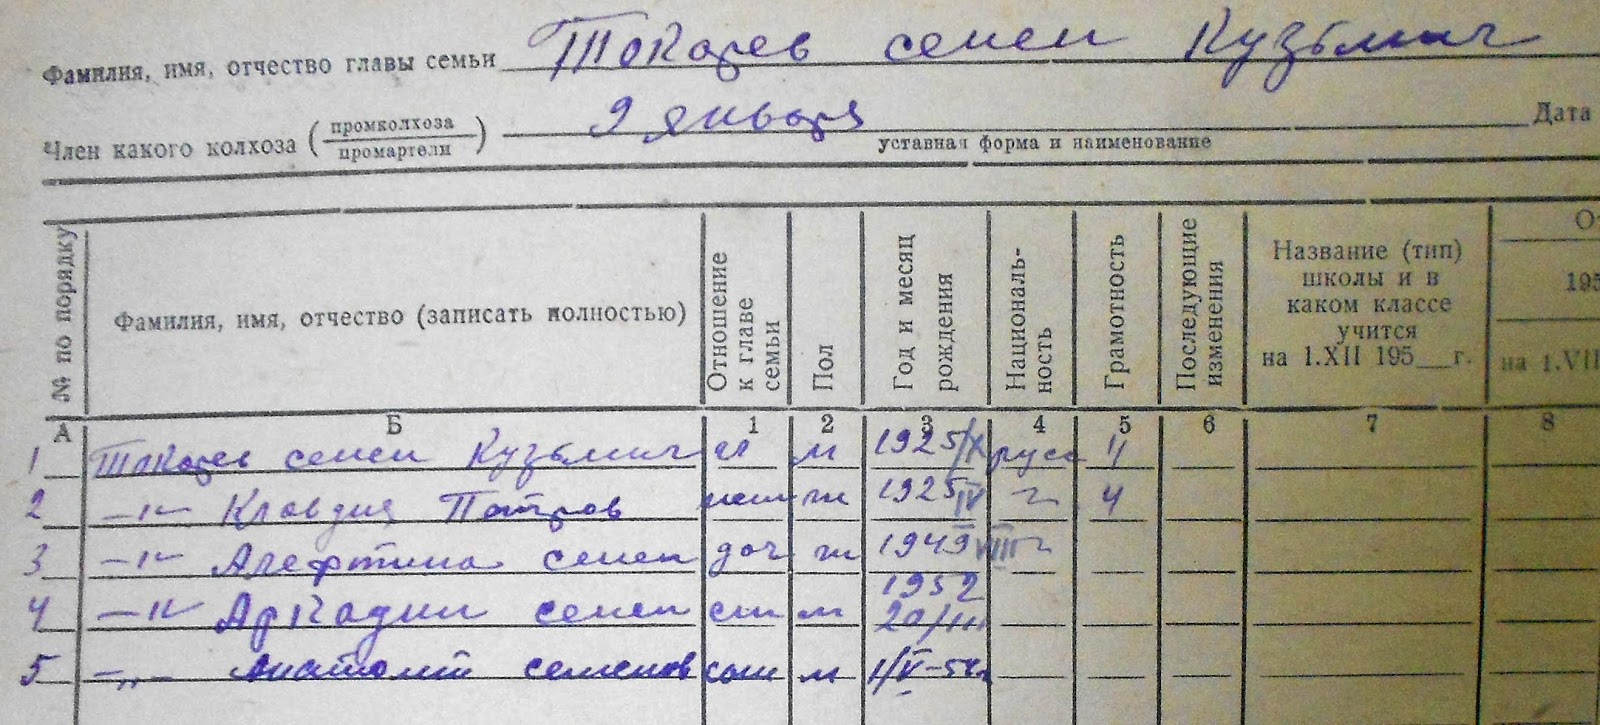 Фамилия, имя, отчество главы семьи Токарев семен Кузьмич
Член какого колхоза (промколхоза промартели) 9 января Дата
уставная форма и наименование
№ по порядку Фамилия, имя, отчество (записать полностью) Отношение к главе семьи Пол Год и месяц рождения Националь-ность Грамотность Последующие изменения Название (тип) школы и в каком классе учится на 1.XII 195__г. 195 на 1.VII
А Б 1 2 3 4 5 6 7 8
1 Токарев семен Кузьмич гл м 1925/IX русс 4
2 —"— Клавдия Петров жен ж 1925 IV —"— 4
3 —"— Алефтина семен доч ж 1949 VIII —"—
4 —"— Аркадий семен сын м 1952 20/III
5 —"— Анатолий семенов сын м 1/V-54г